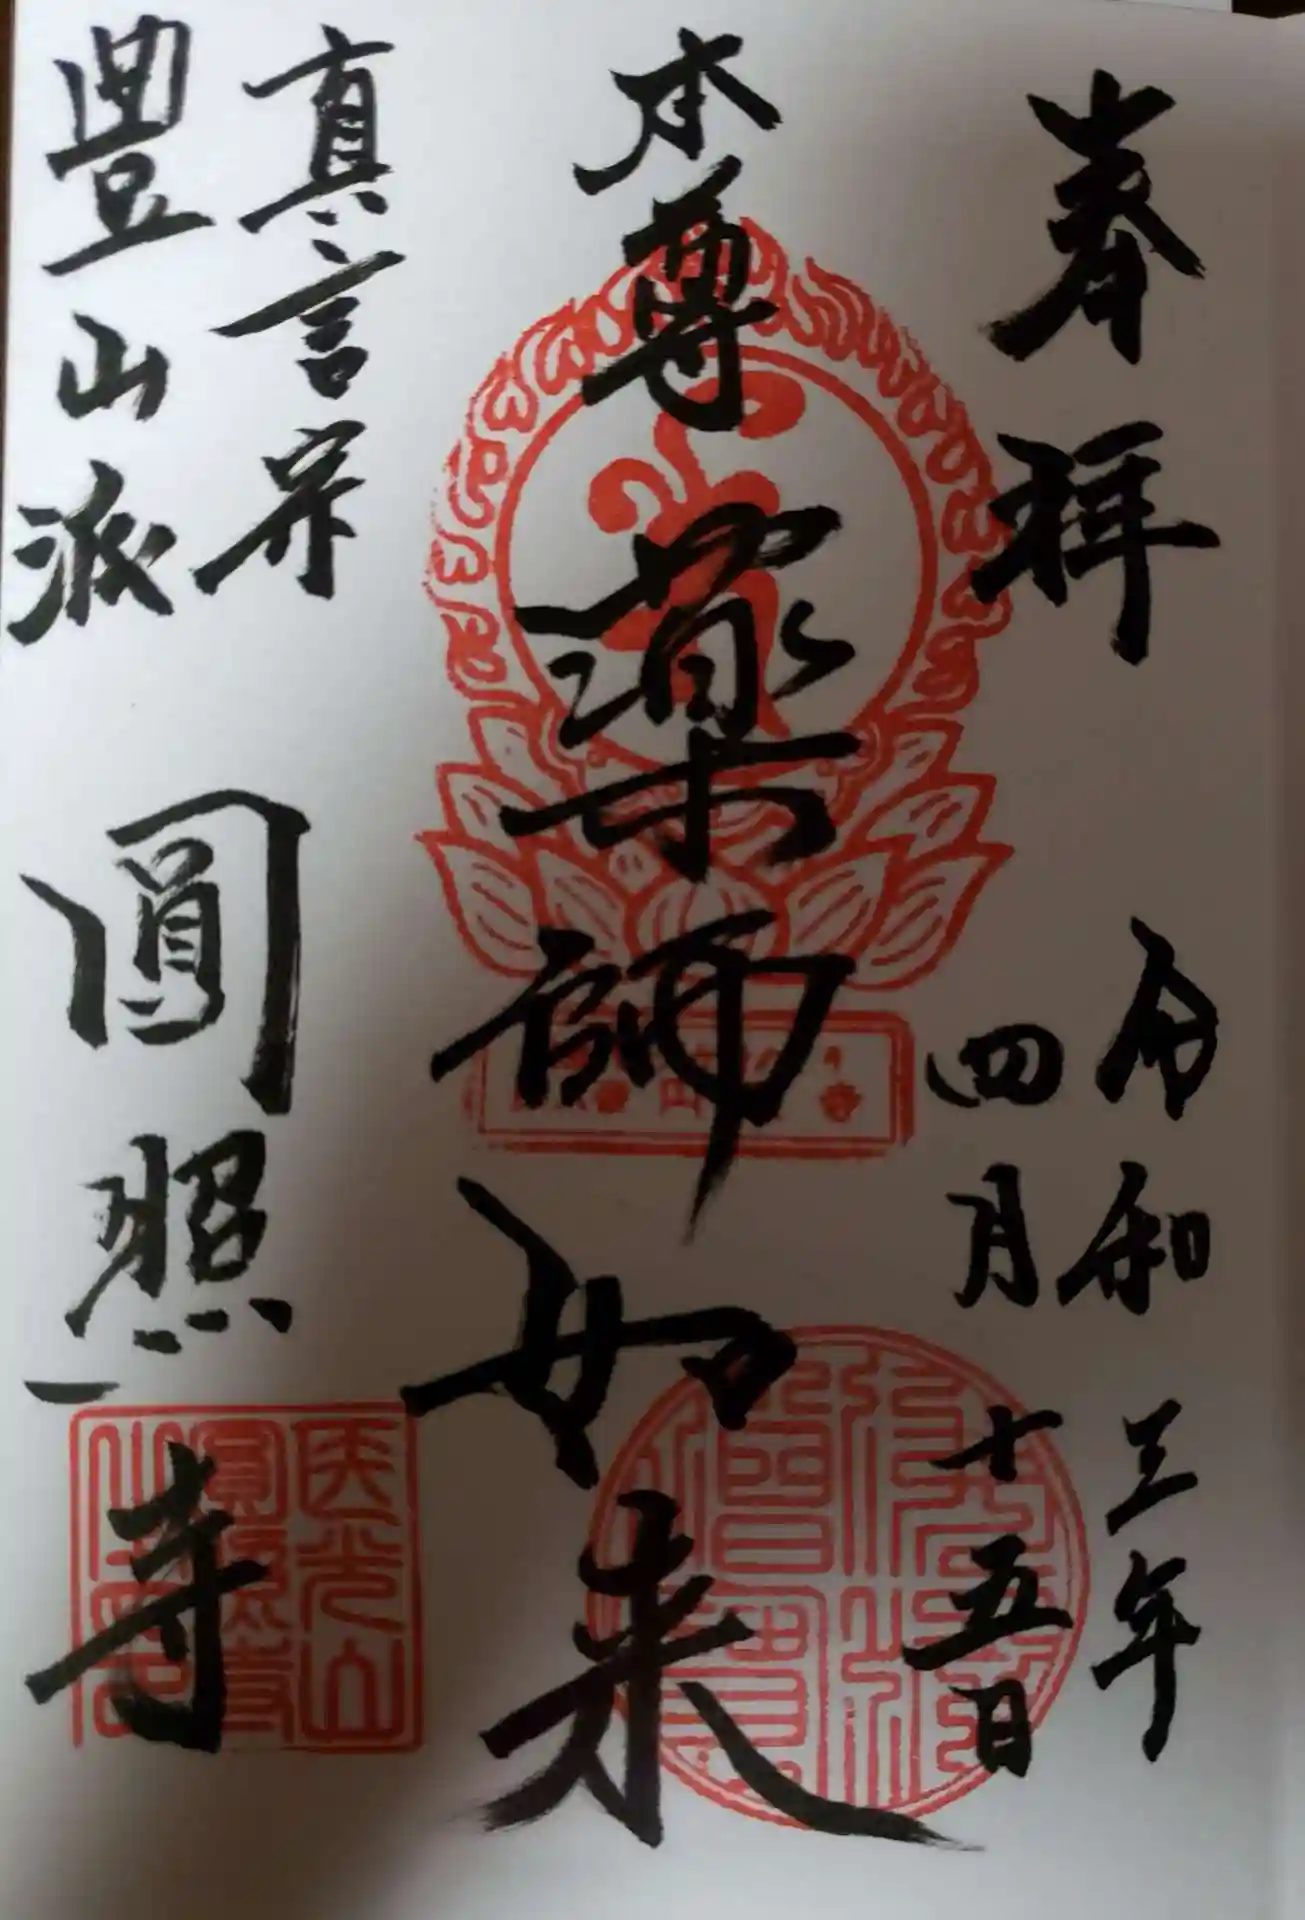 奉拝
令和三年
四月十五日
本尊 薬師如来
真言宗
豊山派
圓照寺
医光山
圓照寺